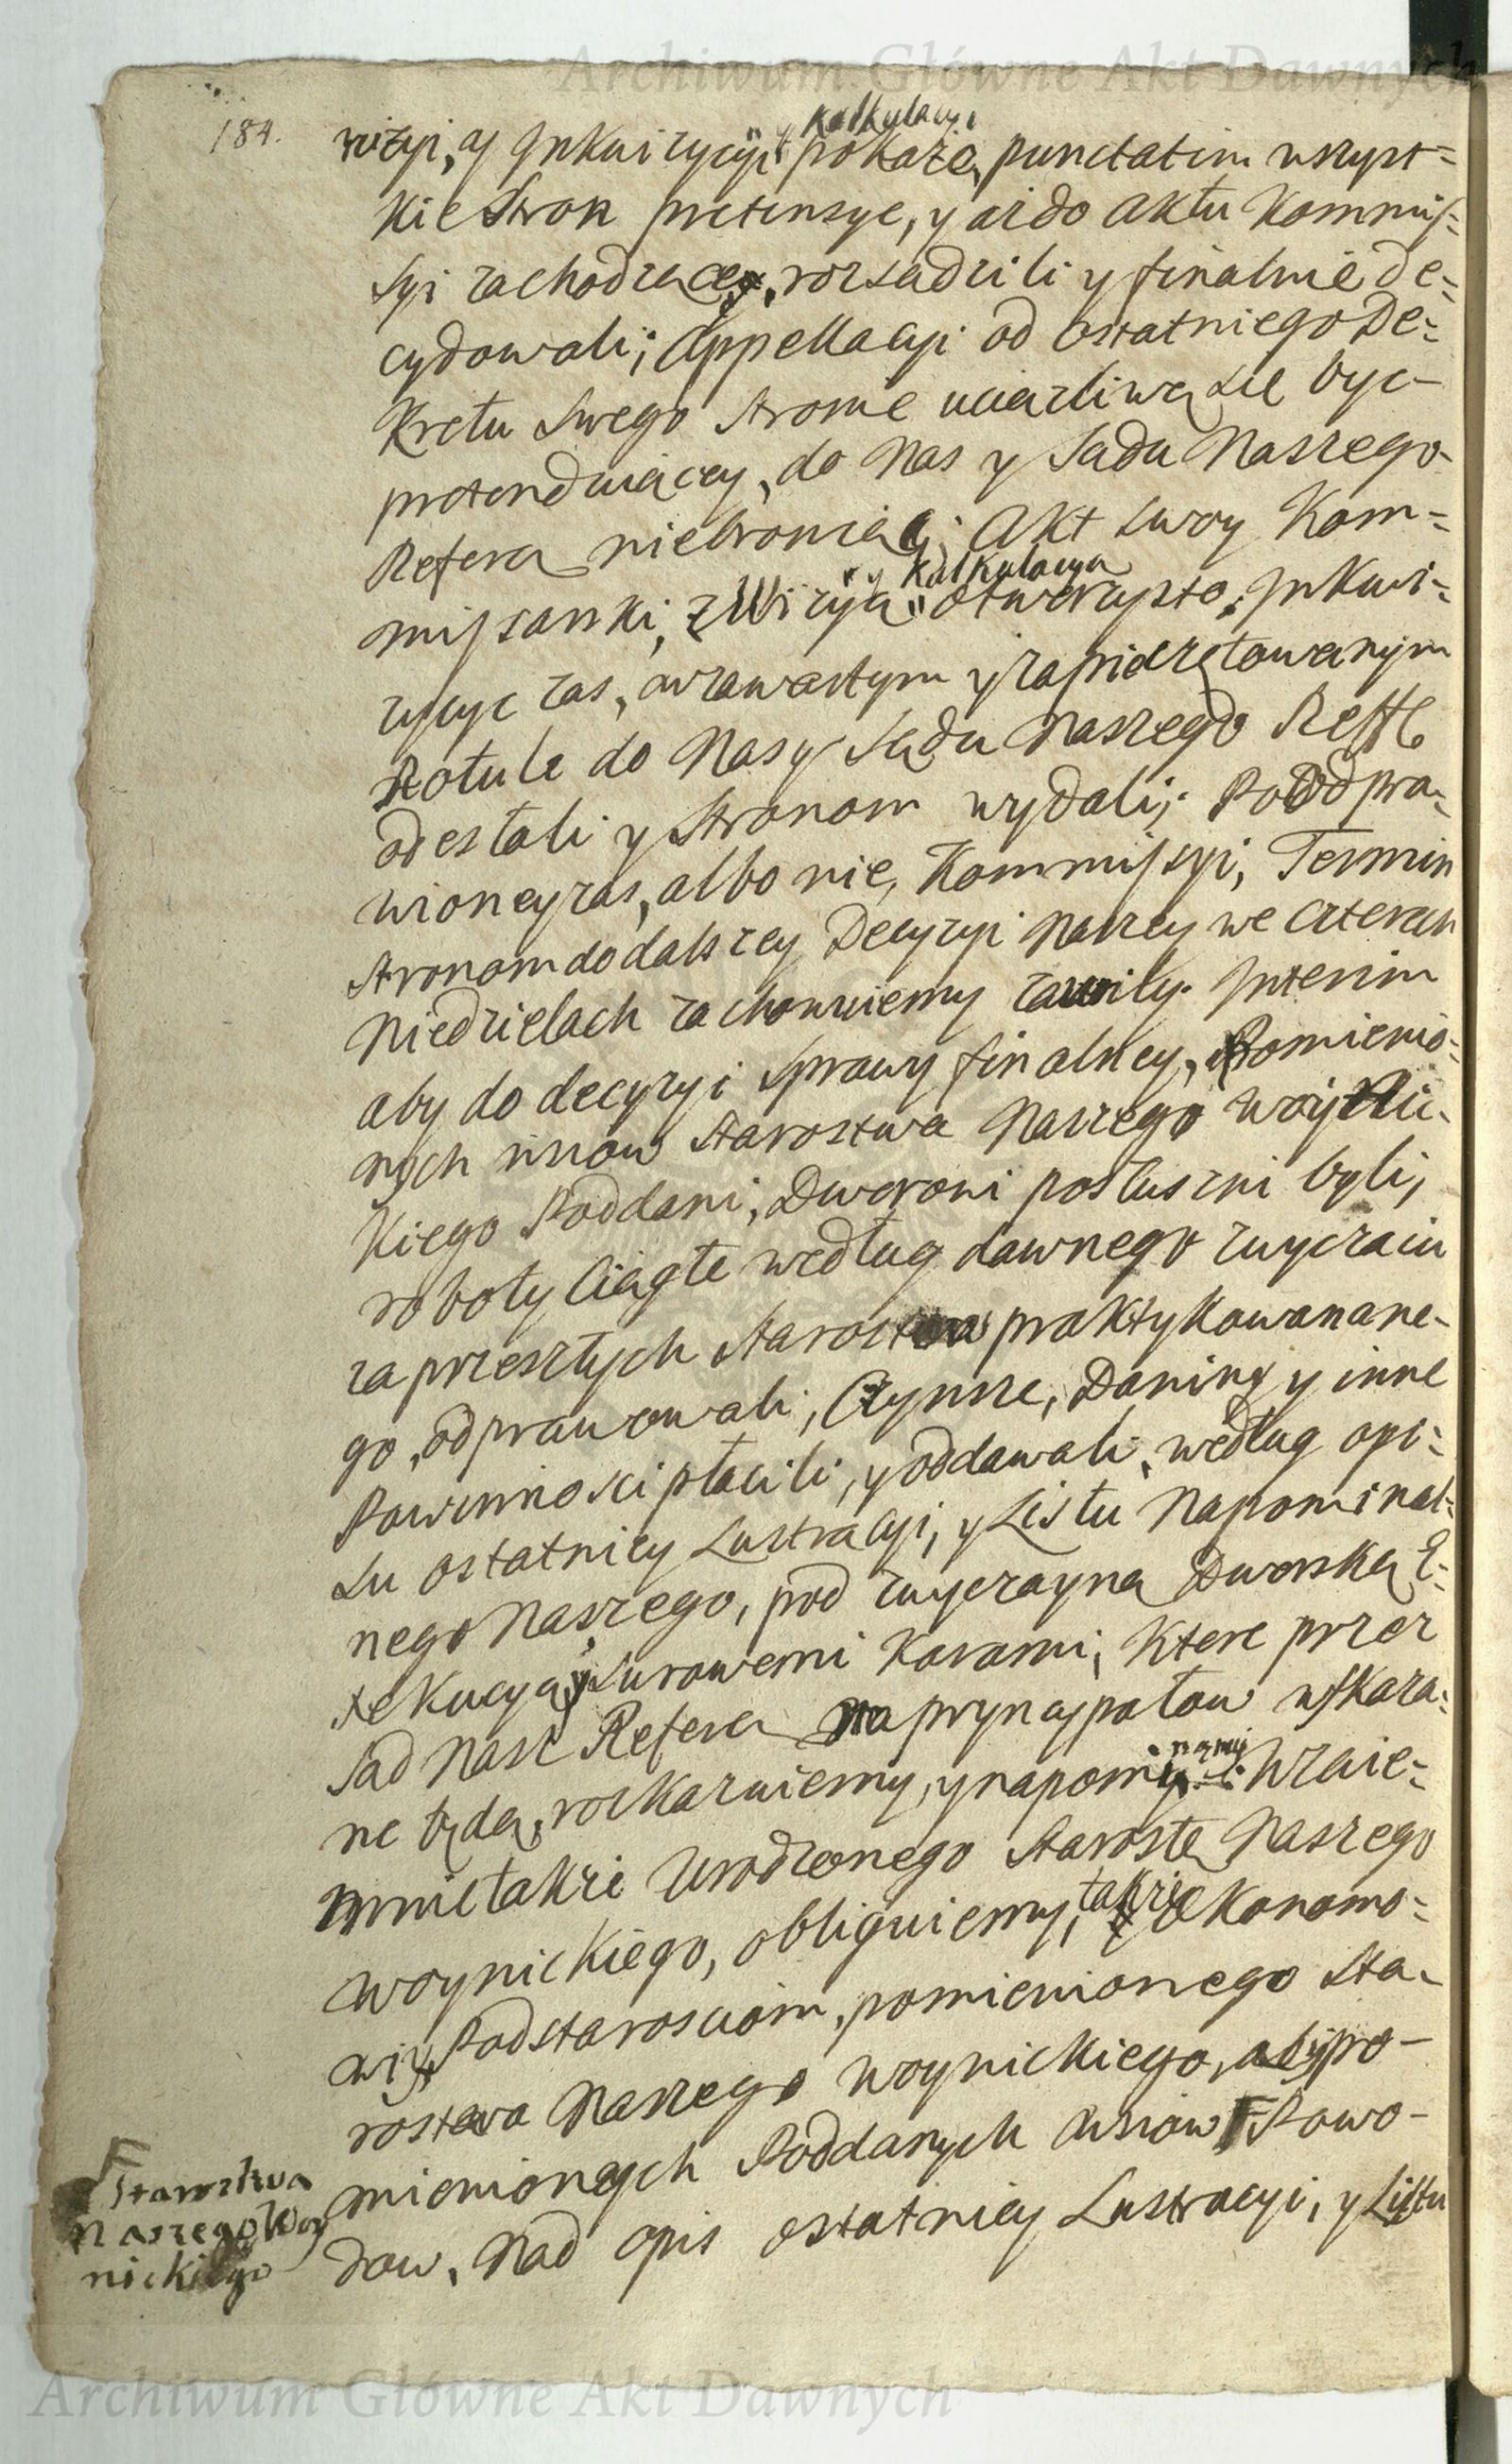 Archiwum Główne Akt Dawnych
184.
y Kalkulacyi
wizyi, y Jnkwizycyi pokaże, punctatim wszyst=
kie Stron pretensye, y aż do aktu Kommis=
syi zachodzące, rozsądzili y finalnie de=
cydowali; Appellacyi od ostatniego De=
kretu Swego stronie uciążliwą się byc
pretenduiącey, do Nas y Sądu Naszego
Refera niebroniąc; Akt Swoy Kom=
y Kalkulacyą
missarski, z Wizyą otworzysto, Jnkwi=
zycye zas, w zawartym y zapieczętowanym
Rotule do Nas y Sądu Naszego Reffe
odesłali y Stronom wydali; Po odpra=
wioney zas, albo nie, Kommissyi, Termin
Stronom do dalszey Decyzyi Naszey we czterech
Niedzielach zachowuiemy zawity. Jnterim
aby do decyzyi Sprawy finalney, Pomienio=
nych wsiow Starostwa Naszego Woynic=
kiego Poddani, Dworowi posłuszni byli,
roboty Ciągłe według dawnego zwyczaiu
za przeszłych Starostow praktykowanane=
go, odprawowali, Czynsze, Daniny y inne
Powinnosci płacili, y oddawali, według opi=
su ostatniey Lustracyi, y Listu Napominal=
nego Naszego, pod zwyczayną Dworską E=
xekucyą y surowemi Karami, ktore przez
Sąd Nasz Refera na prynaypałow wskaza=
ne będą, roskazuiemy, y napominamy: Wzaie=
mnie także Urodzonego Starostę Naszego
Woynickiego, obliguiemy, także Ekonomo=
wi y Podstarosciom, pomienionego Sta=
rostwa Naszego Woynickiego, aby po=
mienionych Poddanych wsiow F Powo=
dow, Nad opis ostatniey Lustracyi, y Listu
F
Starostwa
Naszego Woy
nickiego
Archiwum Główne Akt Dawnych